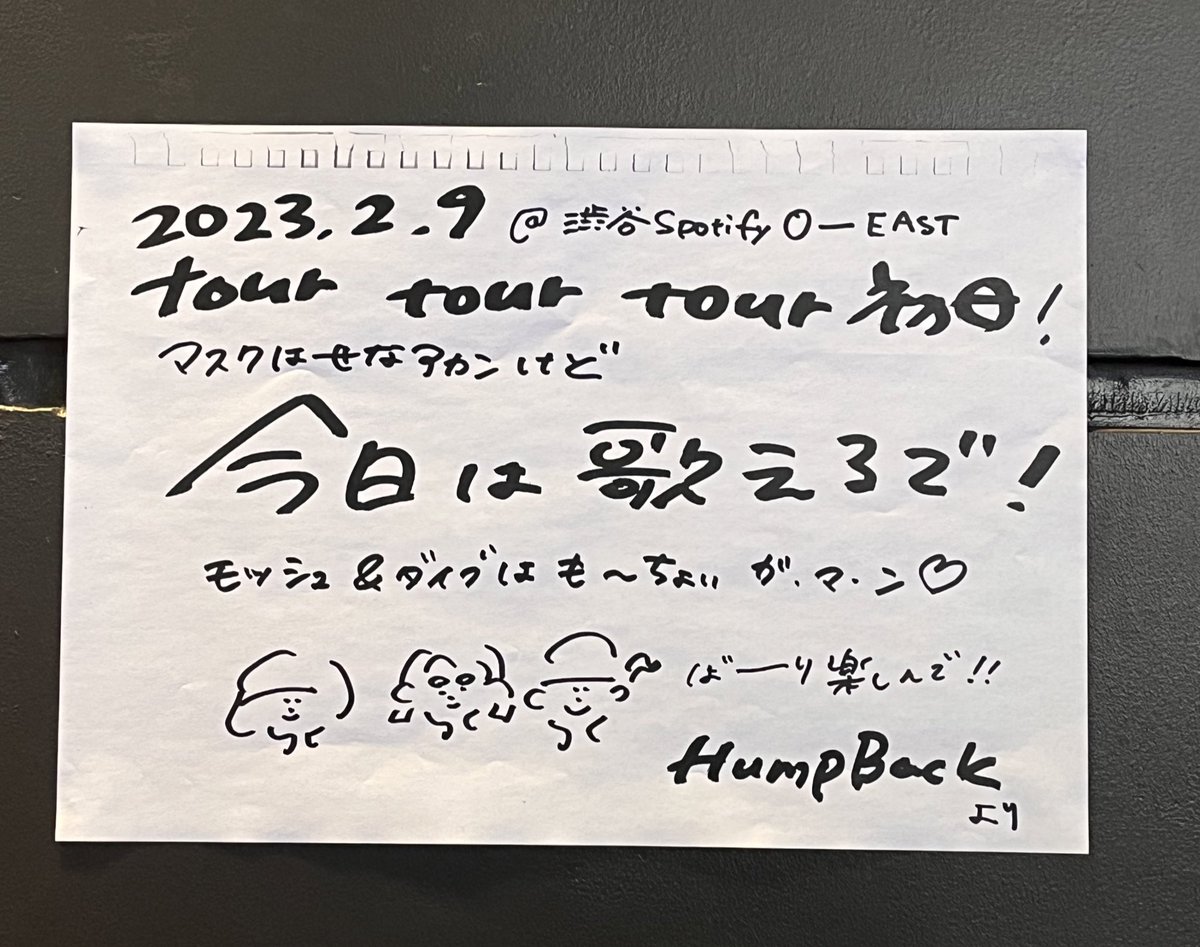 2023.2.9 @ 渋谷Spotify O-EAST
tour tour tour 初日!
マスクはせなアカンけど
今日は歌えるで!
モッシュ&ダイブはも〜ちょい ガ.マ.ン♡
ばーり楽しんで!!
HumpBack
より